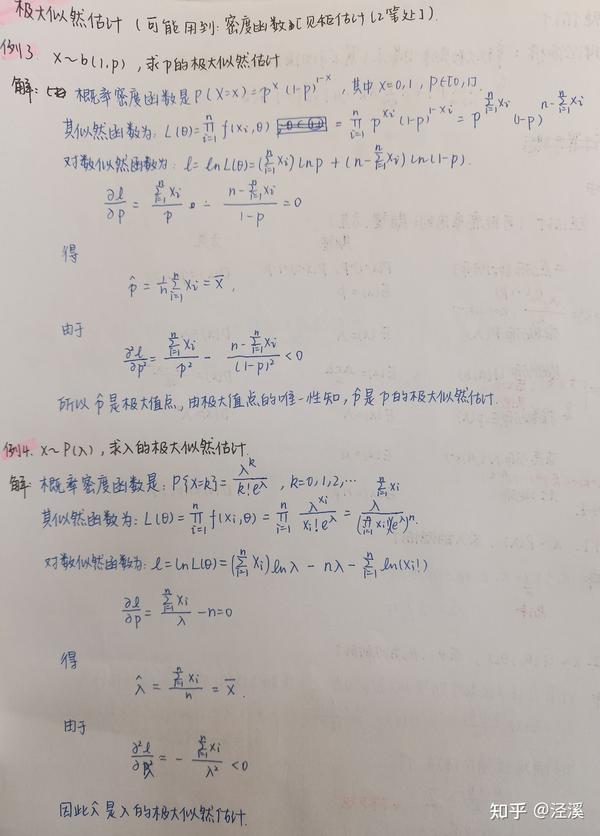 极大似然估计（可能用到：密度函数[见矩估计12笔处]）.
例13 X~b(1,p)，求p的极大似然估计
解：概率密度函数是P(X=x)=p^x(1-p)^{1-x}，其中x=0,1，p∈[0,1].
其似然函数为：L(θ)=∏_{i=1}^n f(xi,θ) = ∏_{i=1}^n p^{xi}(1-p)^{1-xi} = p^{∑_{i=1}^n xi}(1-p)^{n-∑_{i=1}^n xi}
对数似然函数为：l=lnL(θ)=(∑_{i=1}^n xi)lnp+(n-∑_{i=1}^n xi)ln(1-p).
∂l/∂p = ∑_{i=1}^n xi/p - (n-∑_{i=1}^n xi)/(1-p) = 0
得
p̂ = 1/n ∑_{i=1}^n xi = x̄，
由于
∂²l/∂p² = ∑_{i=1}^n xi/p² - (n-∑_{i=1}^n xi)/(1-p)² < 0
所以p̂是极大值点，由极大值点的唯一性知，p̂是p的极大似然估计.
例14. X~P(λ)，求λ的极大似然估计.
解：概率密度函数是：P{X=k}=λ^k/(k!e^λ)，k=0,1,2,…
其似然函数为：L(θ)=∏_{i=1}^n f(xi,θ)=∏_{i=1}^n λ^{xi}/(xi!e^λ)=λ^{∑_{i=1}^n xi}/((∏_{i=1}^n xi!)(e^λ)^n).
对数似然函数为：l=lnL(θ)=(∑_{i=1}^n xi)lnλ-nλ-∑_{i=1}^n ln(xi!)
∂l/∂p = ∑_{i=1}^n xi/λ - n=0
得
λ̂ = ∑_{i=1}^n xi/n = x̄.
由于
∂²l/∂λ² = -∑_{i=1}^n xi/λ² < 0
因此λ̂是λ的极大似然估计.
知乎 @泾溪